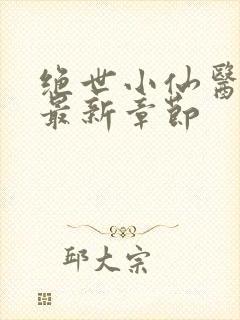 绝世小仙醫
最新章節
邱大宗